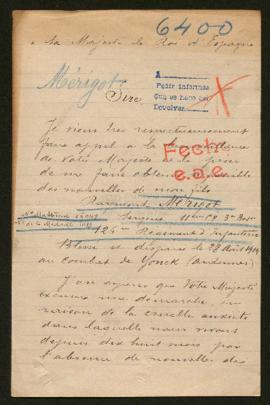 6400
a Sa Majesté le Roi d'Espagne
Mérigot
Sire,
A
Pedir informes
Que se hace en
Devolver
Je viens très respectueusement
faire appel à la bienveillance
de Votre Majesté et la prier
de me faire obtenir si possible
des nouvelles de mon fils
Fecho
e.a.e.
Raymond Mérigot
Sergent 11ème Cie 3e Bon
125ème Régiment d'Infanterie
Blessé et disparu le 28 Août 1914
au combat de Yoncq (Ardennes)
J'ose espérer que Votre Majesté
excusera ma démarche, en
raison de la cruelle anxiété
dans laquelle nous vivons
depuis dix huit mois par
l'absence de nouvelles des